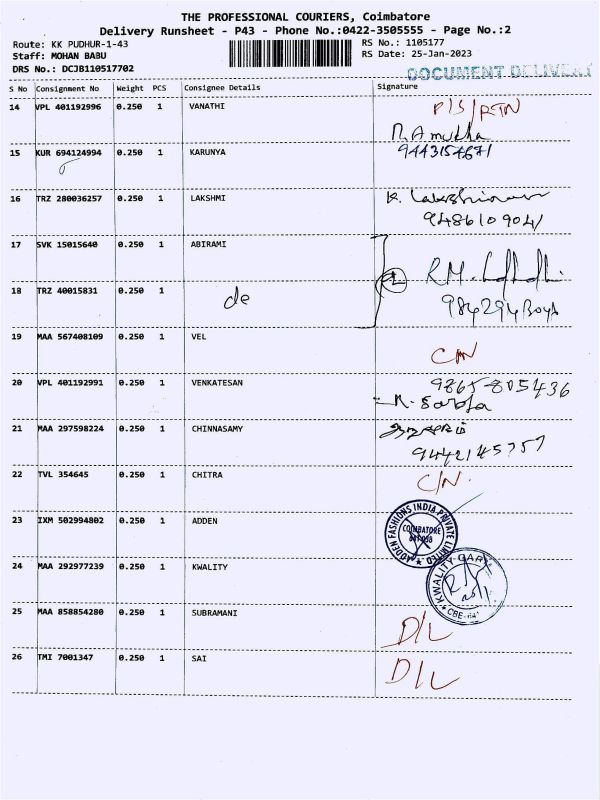 THE PROFESSIONAL COURIERS, Coimbatore
Delivery Runsheet - P43 - Phone No.:0422-3505555 - Page No.:2
Route: KK PUDHUR-1-43
Staff: MOHAN BABU
DRS No.: DCJB110517702
RS No.: 1105177
RS Date: 25-Jan-2023
DOCUMENT DELIVERY
S No Consignment No Weight PCS Consignee Details Signature
14 VPL 401192996 0.250 1 VANATHI P/S/RTN
R. Amutha
15 KUR 694124994 0.250 1 KARUNYA 9443154671
16 TRZ 280036257 0.250 1 LAKSHMI K. Lakshmi
9486109041
17 SVK 15015640 0.250 1 ABIRAMI
18 TRZ 40015831 0.250 1 de
19 MAA 567408109 0.250 1 VEL C/N
20 VPL 401192991 0.250 1 VENKATESAN 9865-805436
N. Saroja
21 MAA 297598224 0.250 1 CHINNASAMY
9442145757
22 TVL 354645 0.250 1 CHITRA C/N.
23 IXM 502994802 0.250 1 ADDEN ADDEN FASHIONS INDIA PRIVATE LIMITED COIMBATORE
24 MAA 292977239 0.250 1 KWALITY KWALITY CBE-641
25 MAA 858854280 0.250 1 SUBRAMANI D/L
26 TMI 7001347 0.250 1 SAI D/L